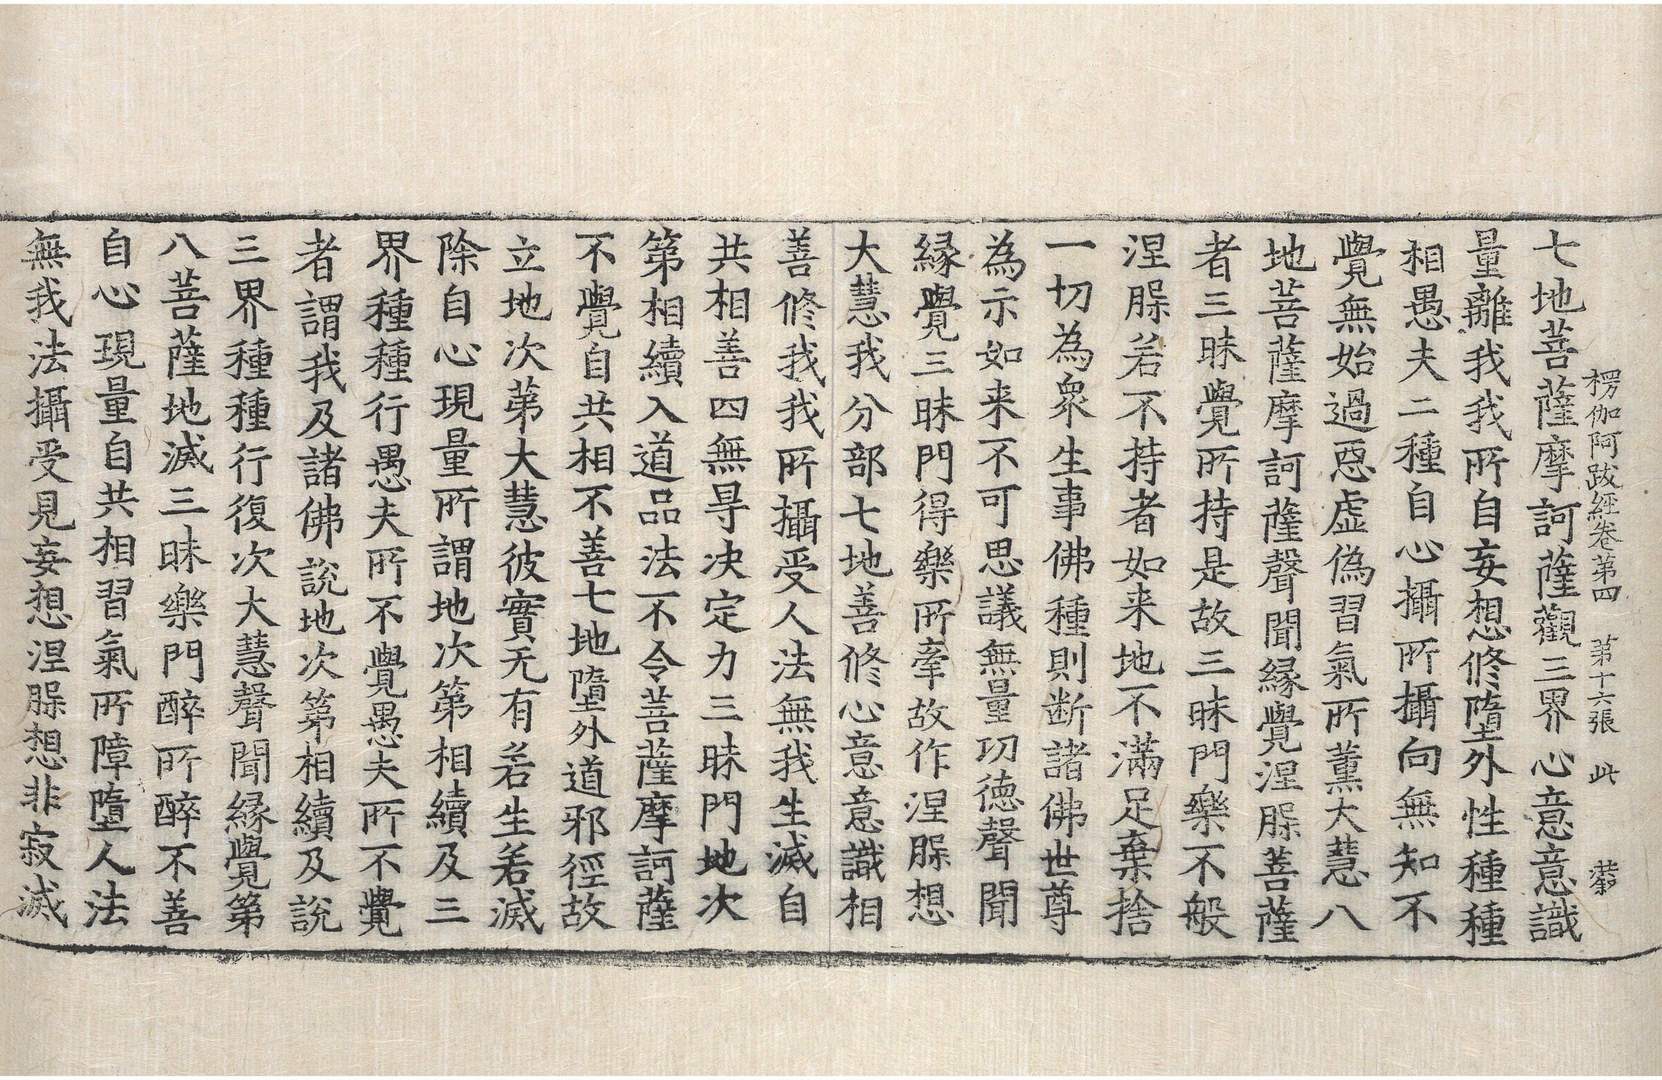 楞伽阿跋經卷第四　第十六張　此
七地菩薩摩訶薩觀三界心意意識
量離我我所自妄想修墮外性種種
相愚夫二種自心攝所攝向無知不
覺無始過惡虛偽習氣所薰大慧八
地菩薩摩訶薩聲聞緣覺涅槃菩薩
者三昧覺所持是故三昧門樂不般
涅槃若不持者如来地不滿足棄捨
一切為衆生事佛種則断諸佛世尊
為示如来不可思議無量功德聲聞
緣覺三昧門得樂所牽故作涅槃想
大慧我分部七地善修心意意識相
善修我我所攝受人法無我生滅自
共相善四無㝵决定力三昧門地次
第相續入道品法不令菩薩摩訶薩
不覺自共相不善七地墮外道邪徑故
立地次第大慧彼實无有若生若滅
除自心現量所謂地次第相續及三
界種種行愚夫所不覺愚夫所不覺
者謂我及諸佛說地次第相續及說
三界種種行復次大慧聲聞緣覺第
八菩薩地滅三昧樂門醉所醉不善
自心現量自共相習氣所障墮人法
無我法攝受見妄想涅槃想非寂滅